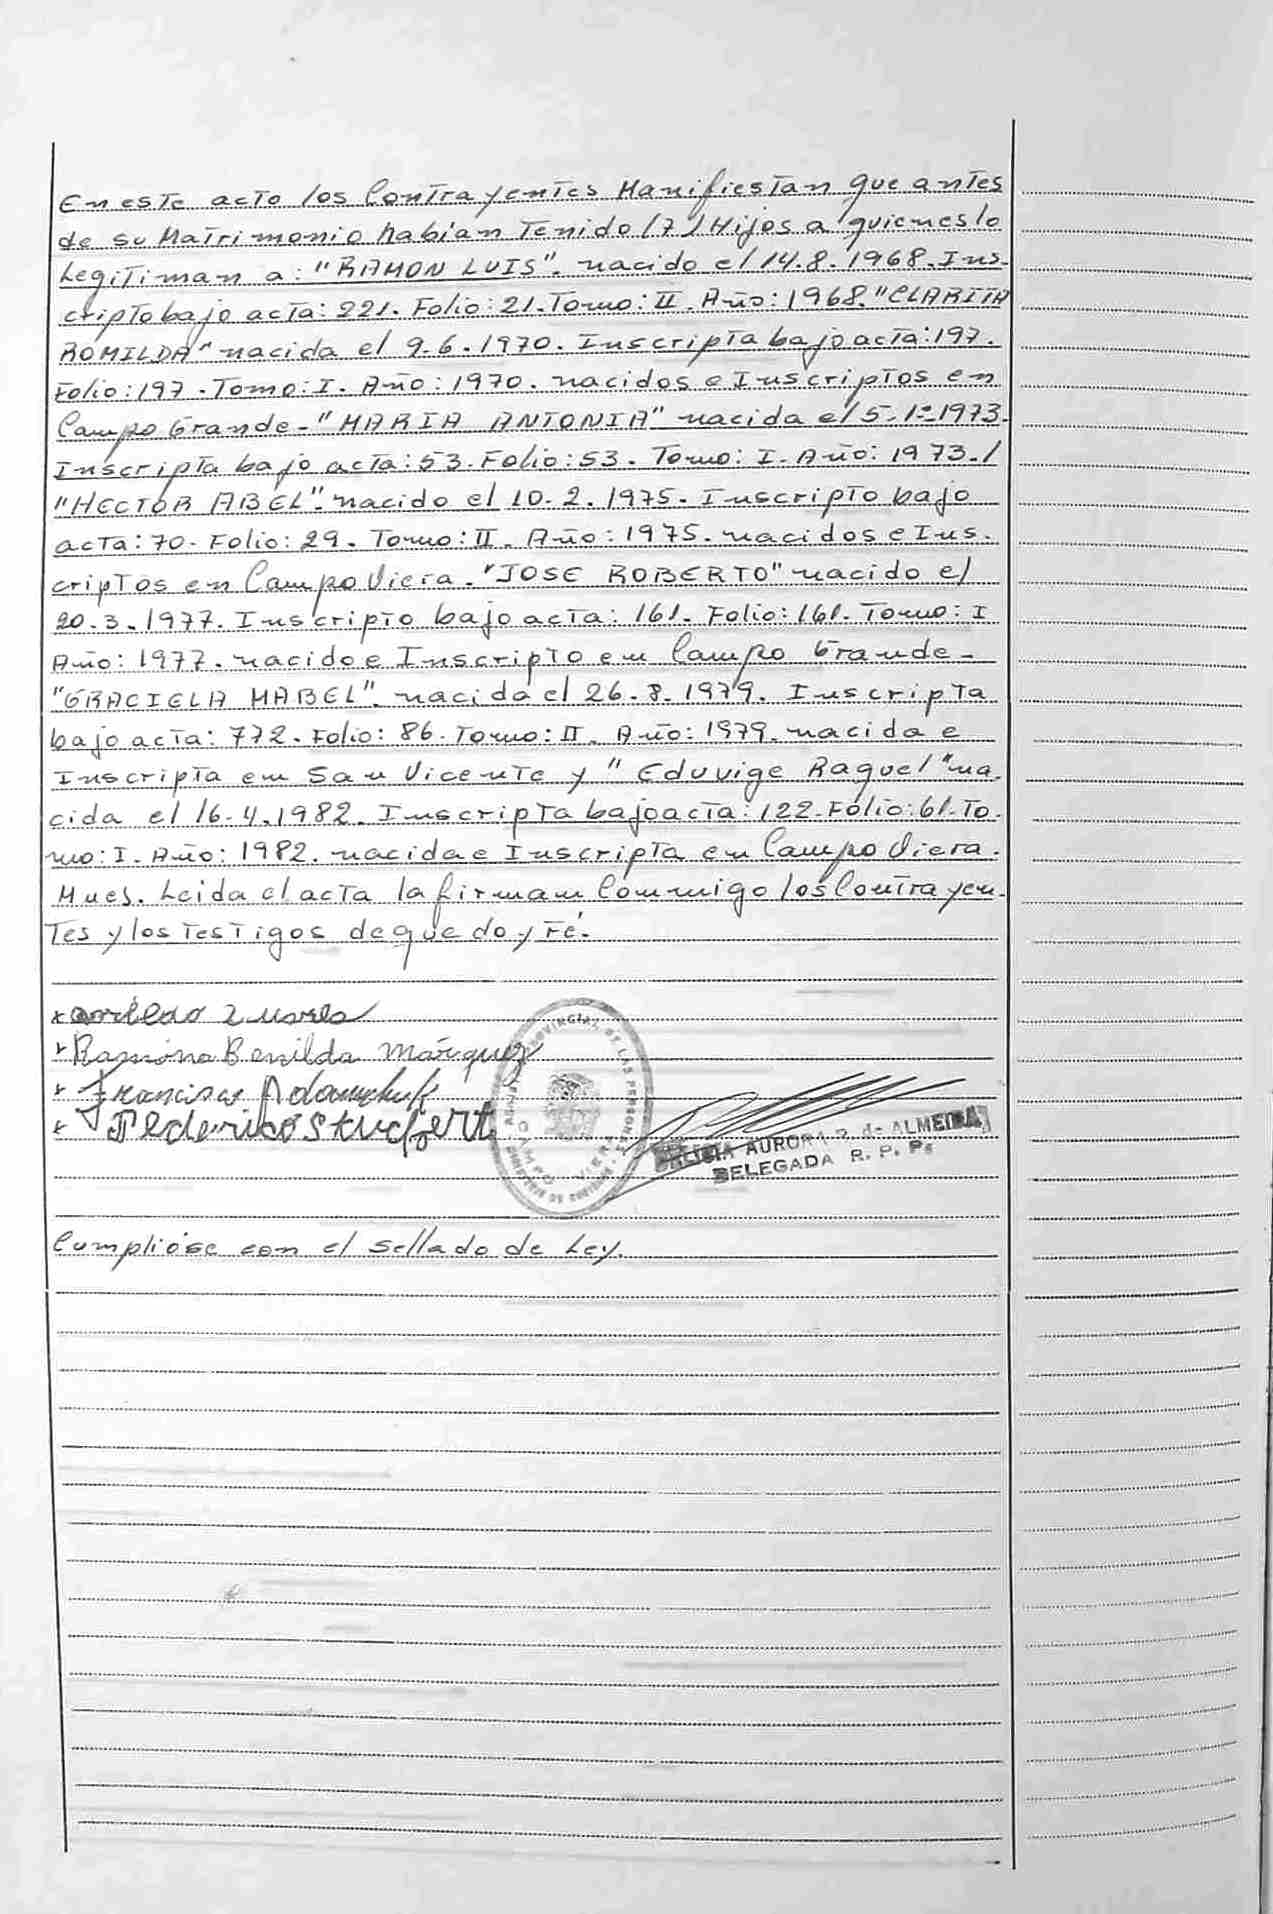 En este acto los Contrayentes Manifiestan que antes
de su Matrimonio habian Tenido (7) Hijos a quienes lo
Legitiman a: "RAMON LUIS". nacido el 14.8.1968. Ins-
cripto bajo acta: 221. Folio: 21. Tomo: II. Año: 1968. "CLARITA
ROMILDA" nacida el 9-6-1970. Inscripta bajo acta: 197.
Folio: 197. Tomo: I. Año: 1970. nacidos e Inscriptos en
Campo Grande- "MARIA ANTONIA" nacida el 5-1º-1973.
Inscripta bajo acta: 53. Folio: 53. Tomo: I. Año: 1973./
"HECTOR ABEL". nacido el 10-2.1975. Inscripto bajo
acta: 70. Folio: 29. Tomo: II. Año: 1975. nacidos e Ins-
criptos en Campo Viera. "JOSE ROBERTO" nacido el
20.3.1977. Inscripto bajo acta: 161. Folio: 161. Tomo: I
Año: 1977. nacido e Inscripto en Campo Grande-
"GRACIELA MABEL". nacida el 26.8.1979. Inscripta
bajo acta: 772. Folio: 86. Tomo: II. Año: 1979. nacida e
Inscripta en San Vicente y "Eduvige Raquel" na-
cida el 16-4.1982. Inscripta bajo acta: 122. Folio: 61. To-
mo: I. Año: 1982. nacida e Inscripta en Campo Viera.
Mnes. Leida el acta la firman Conmigo los Contrayen-
tes y los testigos de que doy Fé.
Ramona Benilda Márquez
Francisco
Federico
CAMPO VIERA
AURORA R. de ALMEIDA
DELEGADA R. P. Ps
Cumplióse con el sellado de Ley.